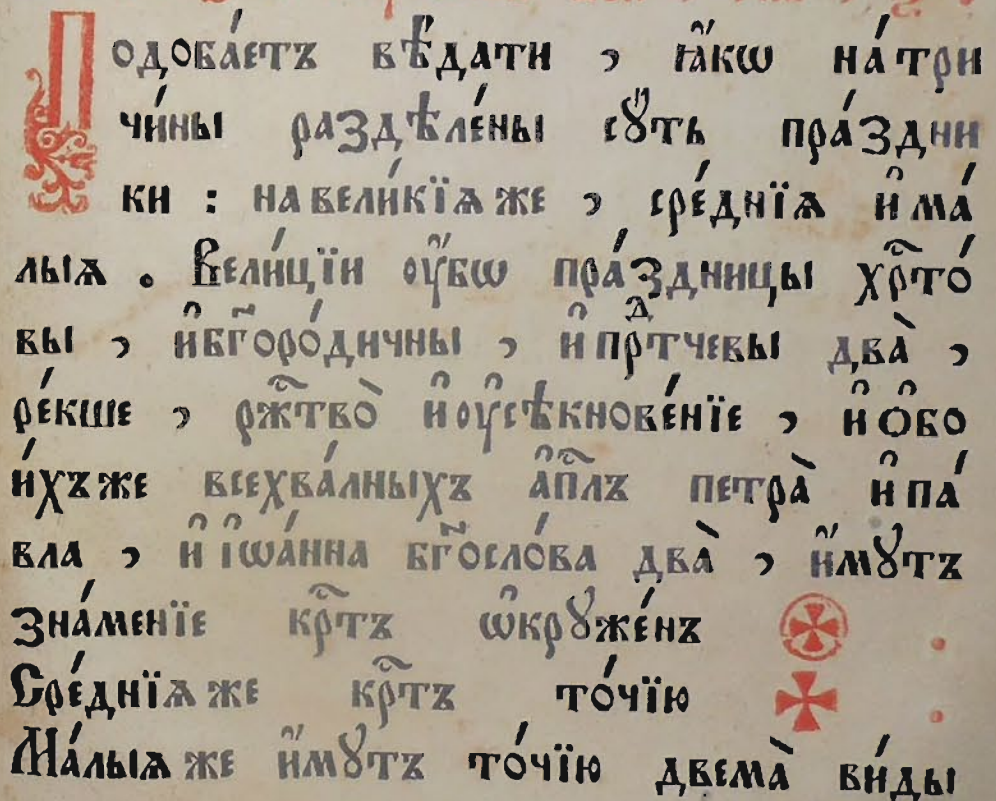 Подоба́етъ вѣ́дати , ꙗ҆́кѡ на́ три
чи́ны раздѣле́ны сꙋ́ть пра́здни
ки : на вели́кїѧ же , сре́днїѧ и҆ ма́
лыѧ . Вели́цїи ᲂу҆́бѡ пра́здницы хрⷭ҇то́
вы , и҆ бг҃оро́дичны , и҆ прⷣтчевы два̀ ,
ре́кше , рж҃тво̀ и҆ ᲂу҆сѣкнове́нїе , и҆ ѻ҆бо
и́хъ же всехва́лныхъ а҆п҃лъ петра̀ и҆ па́
вла , и҆ і҆ѡа́нна бг҃осло́ва два̀ , и҆́мꙋтъ
зна́менїе крⷭ҇тъ ѡ҆крꙋже́нъ
Сре́днїѧ же крⷭ҇тъ то́чїю
Ма́лыѧ же и҆́мꙋтъ то́чїю двема̀ ви́ды